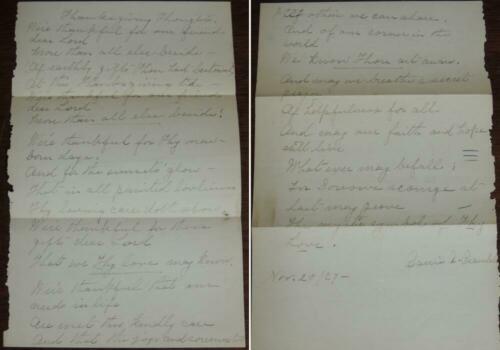 Thanksgiving Thoughts.
We're thankful for our friends
dear Lord
More than all else beside –
Of earthly gifts Thou hast bestowed
At this Thanksgiving tide –
We're thankful for our friends
dear Lord
More than all else beside!
We're thankful for Thy
days;
And for the sunsets' glow –
That in all painted loveliness
Thy loving care doth show.
We're thankful for these
gifts dear Lord
That we Thy love may know.
We're thankful that our
needs in life
Are met thro' kindly care
And that the joys and
With others we can share.
And of our corner in the
world
We know Thou art aware.
And may we breathe a secret
prayer
Of helpfulness for all
And may our faith and hope
still live
What ever may befall;
For
last may prove –
Thy mighty symbols of Thy
Love!
Nov. 24/27 –